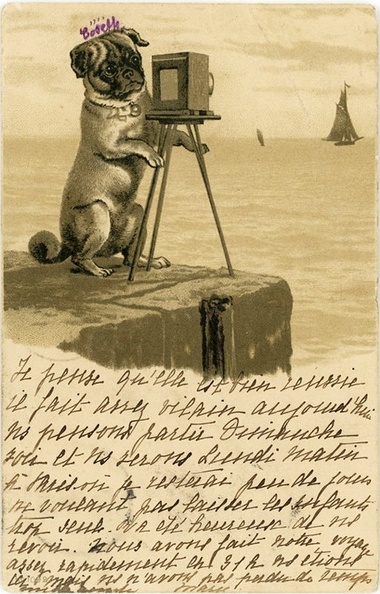 Je pense qu'elle est bien reussie
il fait assez vilain aujourd'hui
ns pensons partir Dimanche
soir et ns serons Lundi matin
je resterai peu de jours
ne voulant pas laisser les enfants
trop seuls. été heureux de ns
revoir. Nous avons fait notre voyage
assez rapidement ns étions
mais ns n'avons pas perdu de temps